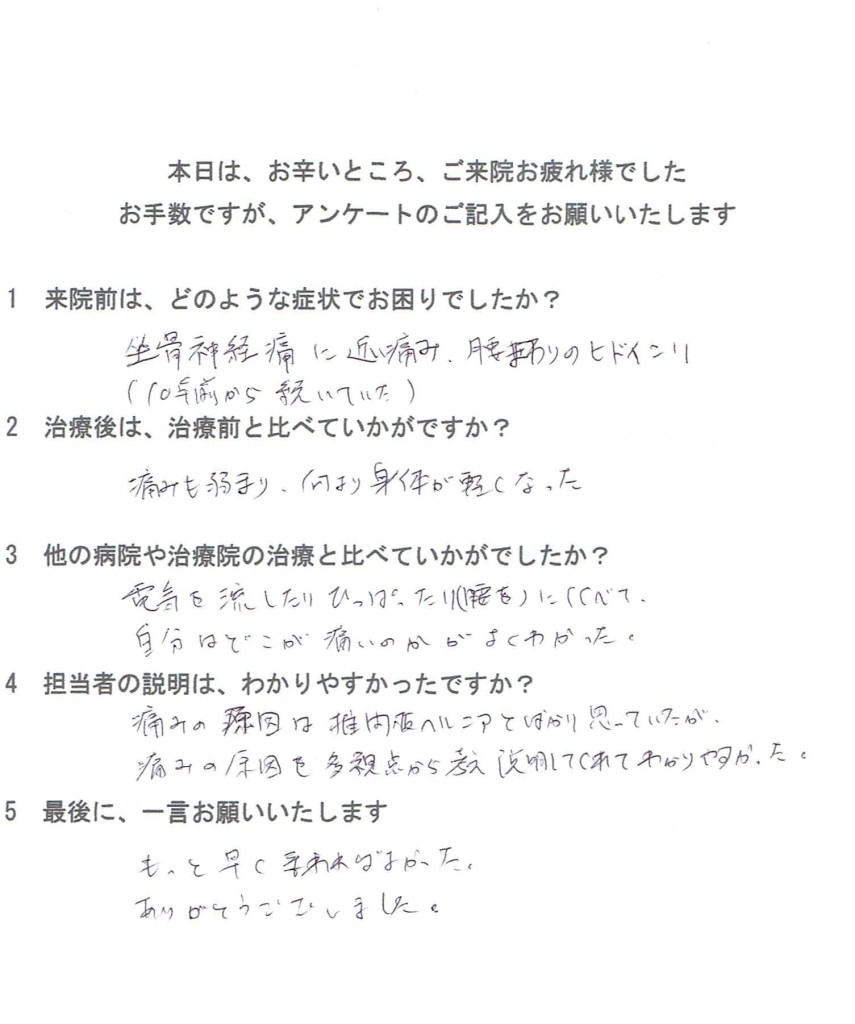 本日は、お辛いところ、ご来院お疲れ様でした
お手数ですが、アンケートのご記入をお願いいたします
1 来院前は、どのような症状でお困りでしたか？
坐骨神経痛に近い痛み、腰まわりのヒドイコリ
(10年前から続いていた)
2 治療後は、治療前と比べていかがですか？
痛みも弱まり、何より身体が軽くなった
3 他の病院や治療院の治療と比べていかがでしたか？
電気を流したりひっぱったり(腰を)にくらべて、
自分はどこが痛いのかがよくわかった。
4 担当者の説明は、わかりやすかったですか？
痛みの原因は椎間板ヘルニアとばかり思っていたが、
痛みの原因を多視点から考え説明してくれてわかりやすかった。
5 最後に、一言お願いいたします
もっと早く来ればよかった。
ありがとうございました。